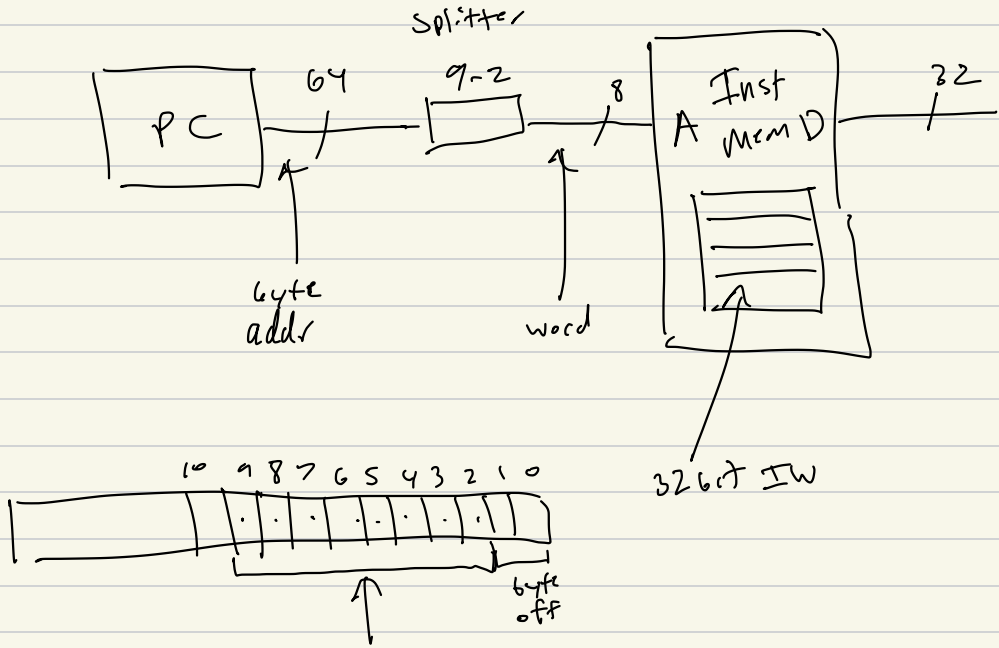 Splitter
PC
64
9-2
8
Inst
A Mem D
32
byte
addr
word
32 bit IW
10 9 8 7 6 5 4 3 2 1 0
byte
off